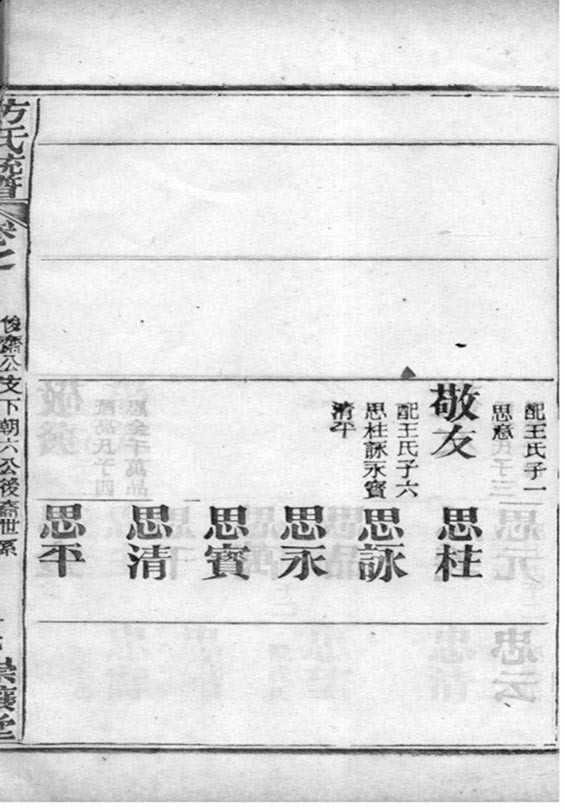 配王氏子一
思意
敬友
配王氏子六
思桂詠永寳
清平
思桂
思詠
思永
思寳
思清
思平
方氏統譜
卷之
後齋公支下朝六公後裔世系